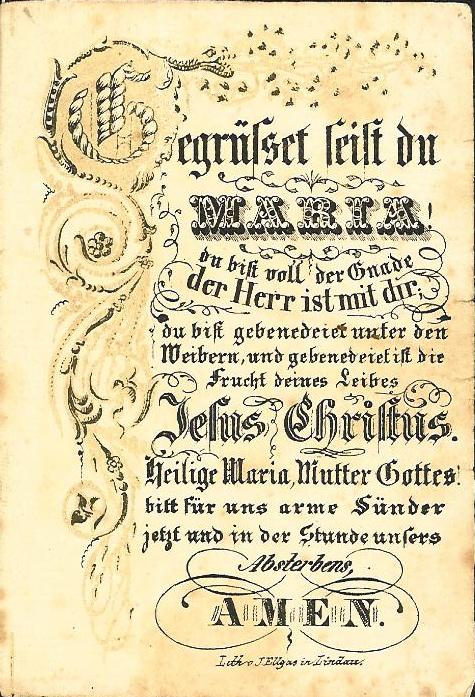 Gegrüſset ſeiſt du
MARIA!
du biſt voll der Gnade
der Herr ist mit dir,
du biſt gebenedeiet unter den
Weibern, und gebenedeiet iſt die
Frucht deines Leibes
Jeſus Chriſtus.
Heilige Maria, Mutter Gottes!
bitt für uns arme Sünder
jetzt und in der Stunde unſers
Absterbens,
AMEN.
Lith. v. J. Ellgas in Lindau.